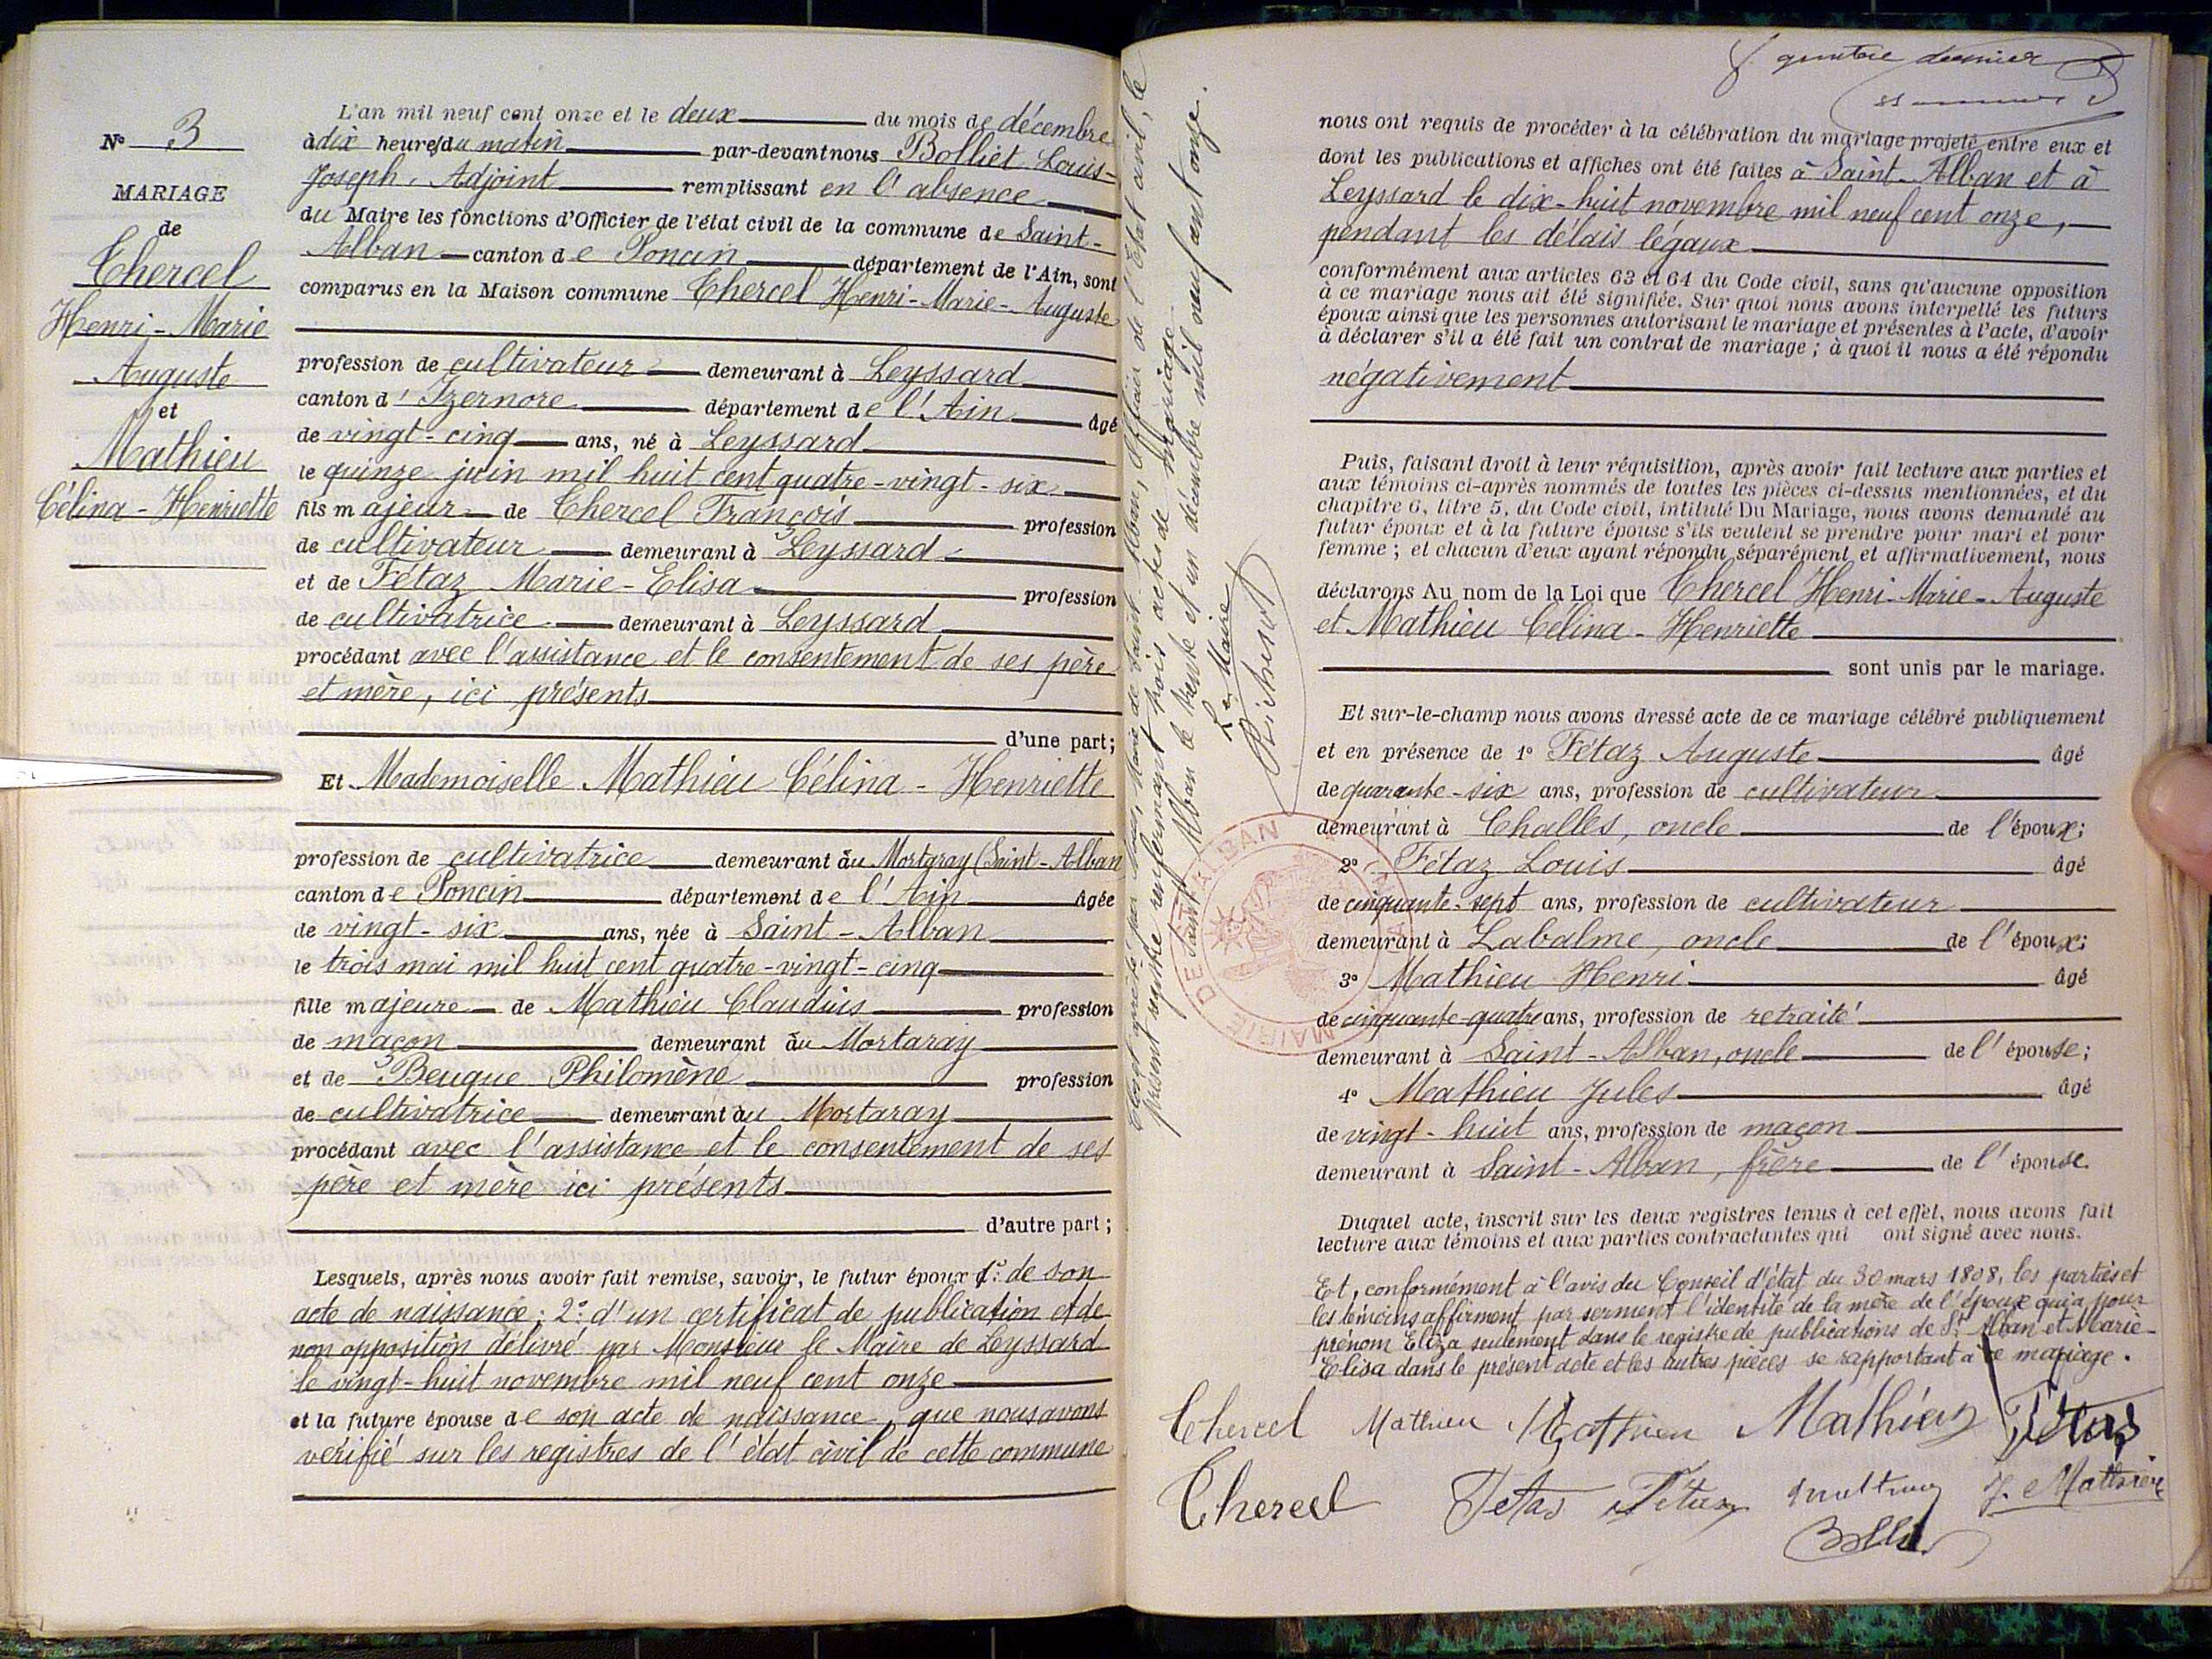 N° 3
MARIAGE
de
Chercel
Henri - Marie
Auguste
et
Mathieu
Célina - Henriette
L'an mil neuf cent onze et le deux du mois de décembre
à dix heures du matin par-devant nous Bolliet Louis-
Joseph, Adjoint remplissant en l'absence
du Maire les fonctions d'Officier de l'état civil de la commune de Saint-
Alban canton de Poncin département de l'Ain, sont
comparus en la Maison commune Chercel Henri-Marie-Auguste
profession de cultivateur demeurant à Leyssard
canton d'Izernore département de l'Ain âgé
de vingt-cinq ans, né à Leyssard
le quinze juin mil huit cent quatre-vingt-six
fils majeur de Chercel François profession
de cultivateur demeurant à Leyssard
et de Fétaz Marie-Elisa profession
de cultivatrice demeurant à Leyssard
procédant avec l'assistance et le consentement de ses père
et mère, ici présents
d'une part;
Et Mademoiselle Mathieu Célina - Henriette
profession de cultivatrice demeurant au Mortaray (Saint-Alban
canton de Poncin département de l'Ain âgée
de vingt-six ans, née à Saint-Alban
le trois mai mil huit cent quatre-vingt-cinq
fille majeure de Mathieu Claudius profession
de maçon demeurant au Mortaray
et de Beugue Philomène profession
de cultivatrice demeurant au Mortaray
procédant avec l'assistance et le consentement de ses
père et mère ici présents
d'autre part;
Lesquels, après nous avoir fait remise, savoir, le futur époux 1°: de son
acte de naissance; 2°: d'un certificat de publication et de
non opposition délivré par Monsieur le Maire de Leyssard
le vingt-huit novembre mil neuf cent onze
et la future épouse de son acte de naissance, que nous avons
vérifié sur les registres de l'état civil de cette commune
Clos et arrêté par Nous, Maire de Saint-Alban, officier de l'État civil, le
présent registre renfermant trois actes de mariage.
Saint Alban le trente et un décembre mil neuf cent onze.
Le Maire
MAIRIE DE ST ALBAN
quatre dernier
nous ont requis de procéder à la célébration du mariage projeté entre eux et
dont les publications et affiches ont été faites à Saint-Alban et à
Leyssard le dix-huit novembre mil neuf cent onze,
pendant les délais légaux
conformément aux articles 63 et 64 du Code civil, sans qu'aucune opposition
à ce mariage nous ait été signifiée. Sur quoi nous avons interpellé les futurs
époux ainsi que les personnes autorisant le mariage et présentes à l'acte, d'avoir
à déclarer s'il a été fait un contrat de mariage; à quoi il nous a été répondu
négativement
Puis, faisant droit à leur réquisition, après avoir fait lecture aux parties et
aux témoins ci-après nommés de toutes les pièces ci-dessus mentionnées, et du
chapitre 6, titre 5, du Code civil, intitulé Du Mariage, nous avons demandé au
futur époux et à la future épouse s'ils veulent se prendre pour mari et pour
femme; et chacun d'eux ayant répondu séparément et affirmativement, nous
déclarons Au nom de la Loi que Chercel Henri-Marie-Auguste
et Mathieu Célina-Henriette
sont unis par le mariage.
Et sur-le-champ nous avons dressé acte de ce mariage célébré publiquement
et en présence de 1° Fétaz Auguste âgé
de quarante-six ans, profession de cultivateur
demeurant à Challes, oncle de l'époux;
2° Fétaz Louis âgé
de cinquante-sept ans, profession de cultivateur
demeurant à Labalme, oncle de l'époux;
3° Mathieu Henri âgé
de cinquante-quatre ans, profession de retraité
demeurant à Saint-Alban, oncle de l'épouse;
4° Mathieu Jules âgé
de vingt-huit ans, profession de maçon
demeurant à Saint-Alban, frère de l'épouse.
Duquel acte, inscrit sur les deux registres tenus à cet effet, nous avons fait
lecture aux témoins et aux parties contractantes qui ont signé avec nous.
Et, conformément à l'avis du Conseil d'état du 30 mars 1808, les parties et
les témoins affirment par serment l'identité de la mère de l'époux qui a pour
prénom Eliza seulement dans le registre de publications de St Alban et Marie-
Elisa dans le présent acte et les autres pièces se rapportant à ce mariage.
Chercel Mathieu Mathieu Mathieu Fétas
Chercel Fetas Fétaz Mathieu J. Mathieu